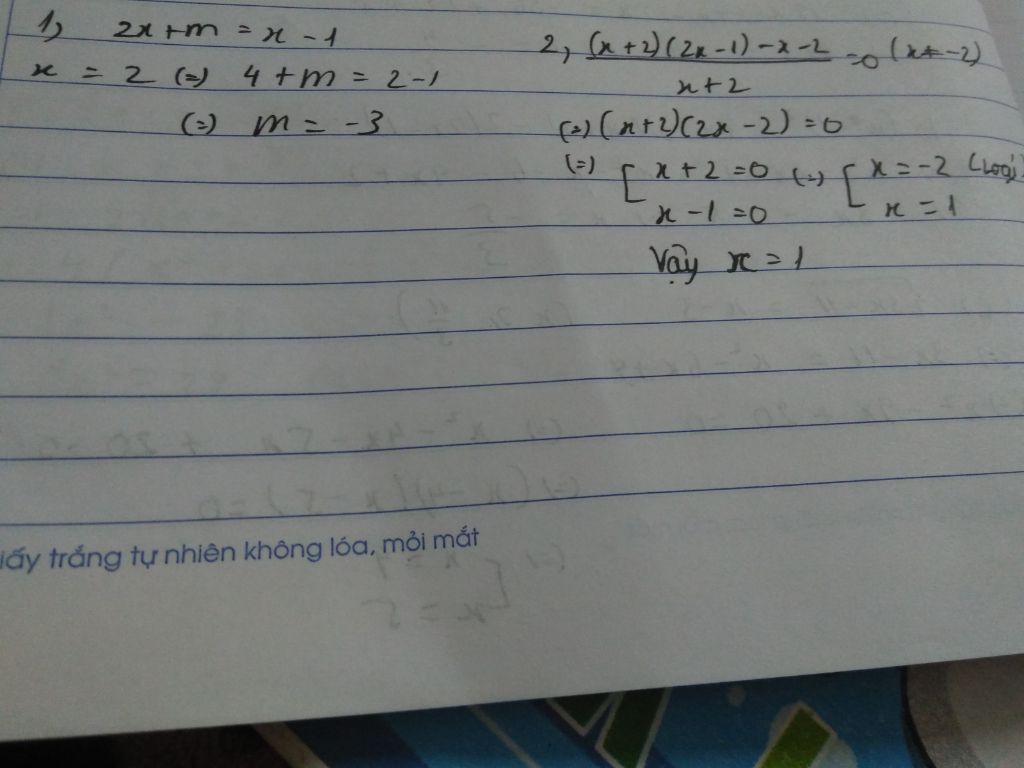 1, 2x + m = x - 1
x = 2 (=) 4 + m = 2 - 1
(=) m = -3
2, (x+2)(2x-1) - x - 2 / x + 2 = 0 (x ≠ -2)
(=) (x+2)(2x-2) = 0
(=) [ x + 2 = 0 (=) [ x = -2 (Loại)
x - 1 = 0 x = 1
Vậy x = 1
iấy trắng tự nhiên không lóa, mỏi mắt